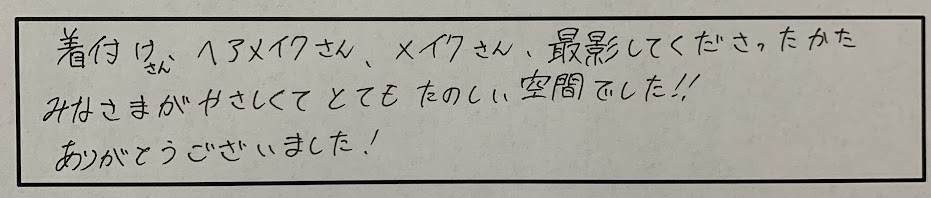 着付けさん、ヘアメイクさん、メイクさん、最影してくださったかた
みなさまがやさしくてとてもたのしい空間でした!!
ありがとうございました!